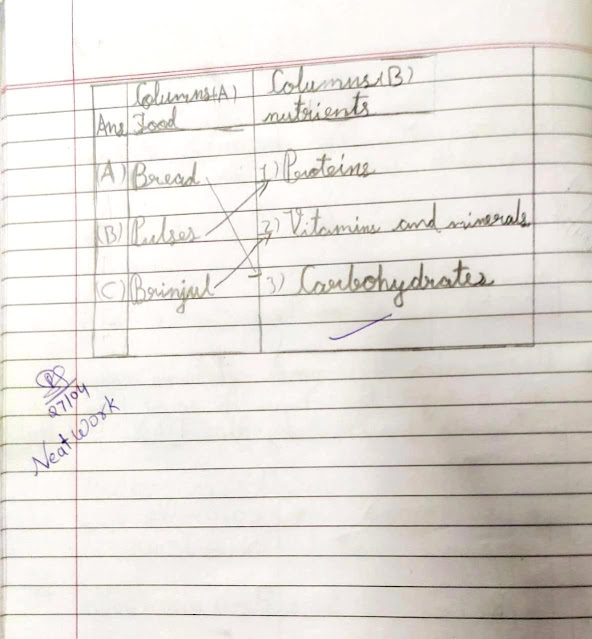 Columns(A) Columns(B)
Ans Food nutrients
(A) Bread 1) Proteins
(B) Pulses 2) Vitamins and minerals
(C) Brinjul 3) Carbohydrates
27/04
Neat Work